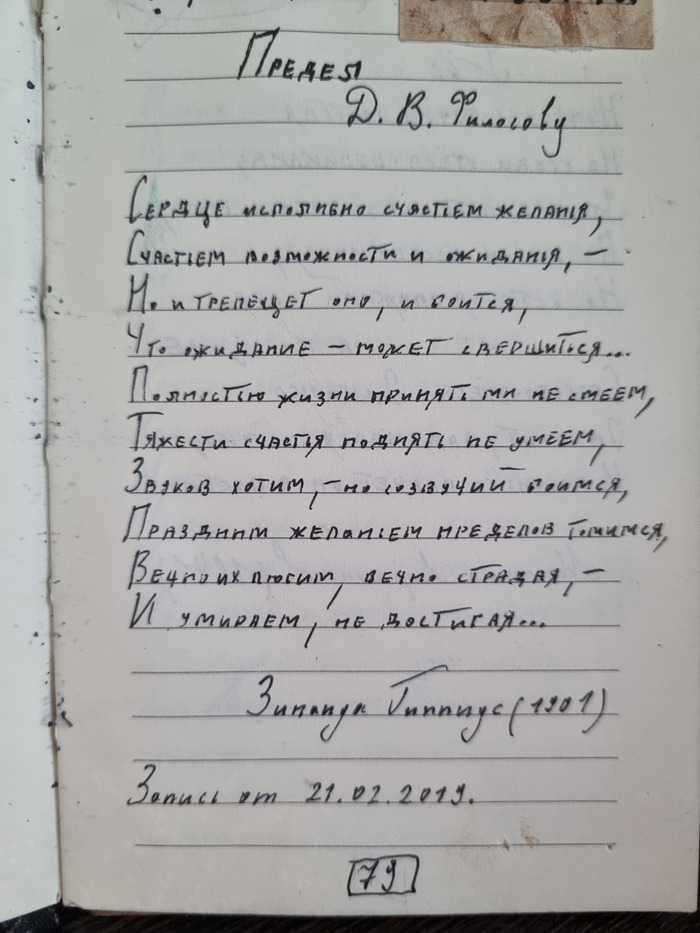 Пределы
Д. В. Философу
Сердце исполнено счастьем желанія,
Счастьем возможности и ожиданія, –
Но и трепещет оно, и боится,
Что ожидание – может свершиться...
Полностью жизни принять мы не смеем,
Тяжести счастья поднять не умеем,
Звуков хотим, – но созвучий боимся,
Праздным желаньем пределов томимся,
Вечно их любим, вечно страдая, –
И умираем, не достигая...
Зинаида Гиппиус (1901)
Запись от 21.02.2019.
79